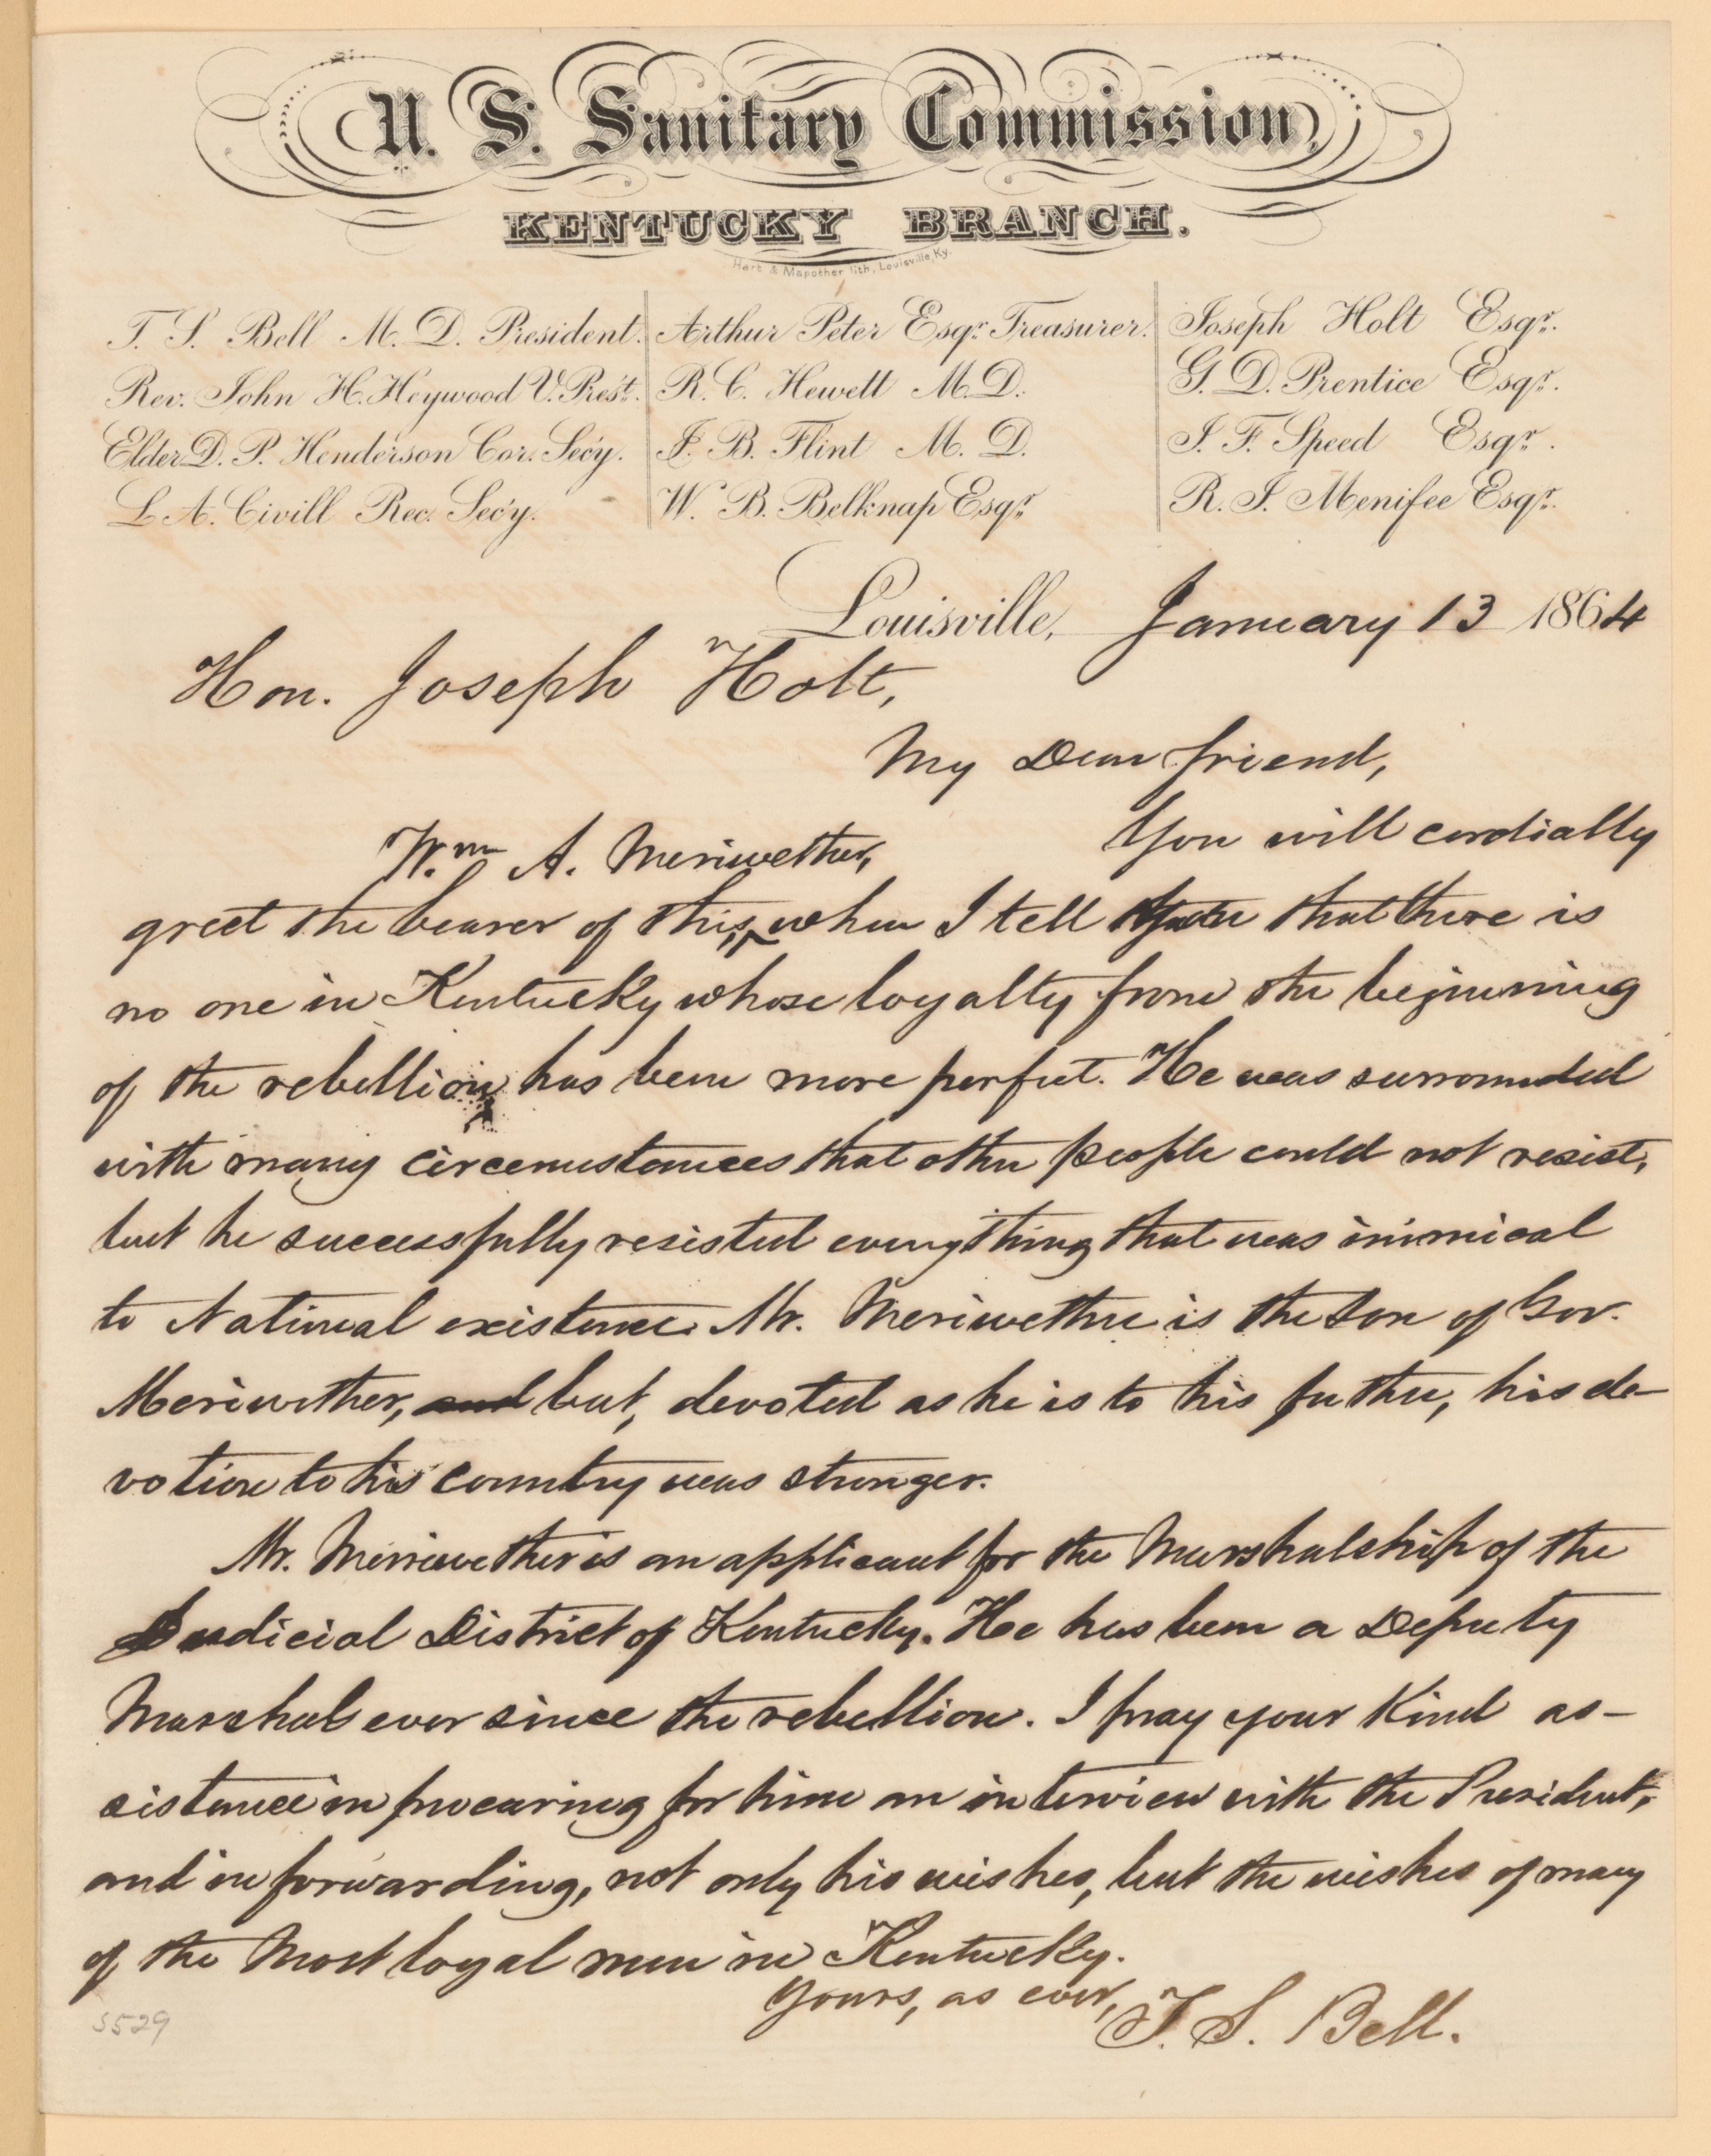 U. S. Sanitary Commission,
KENTUCKY BRANCH.
Hart & Mapother lith, Louisville, Ky.
T. S. Bell M. D. President.
Rev. John H. Heywood V. Prest.
Elder D. P. Henderson Cor. Secy.
L. A. Civill Rec. Secy.
Arthur Peter Esqr. Treasurer.
R. C. Hewett M.D.
J. B. Flint M. D.
W. B. Belknap Esqr.
Joseph Holt Esqr.
G. D. Prentice Esqr.
J. F. Speed Esqr.
R. J. Menifee Esqr.
Louisville, January 13 1864
Hon. Joseph Holt,
My Dear friend,
You will cordially
Wm A. Meriwether,
greet the bearer of this, when I tell you that there is
no one in Kentucky whose loyalty from the beginning
of the rebellion has been more perfect. He was surrounded
with many circumstances that other people could not resist,
but he successfully resisted everything that was inimical
to National existence. Mr. Meriwether is the son of Gov.
Meriwether, and but, devoted as he is to his father, his de-
votion to his country was stronger.
Mr. Merriwether is an applicant for the Marshalship of the
Judicial District of Kentucky. He has been a Deputy
Marshal ever since the rebellion. I pray your kind as-
sistance in procuring for him an interview with the President,
and in forwarding, not only his wishes, but the wishes of many
of the most loyal men in Kentucky.
Yours, as ever,
T. S. Bell.
5529